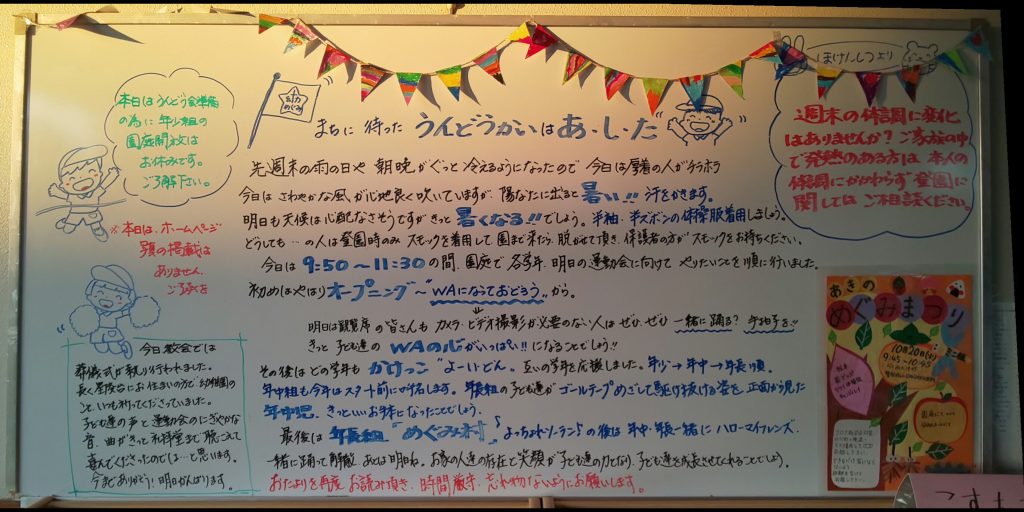 本日はうんどう会準備
の為に年少組の
園庭開放は
お休みです。
ご了解下さい。
※本日は、ホームページ
の掲載は
ありません。
ご了承を
今日教会では
葬儀式が執り行われました。
長く居住台にお住まいの方で"幼稚園の
こと"いつも祈ってくださっていました。
子ども達の声と運動会のにぎやかな
音、曲がきっと礼拝堂まで聴こえて
喜んでくださったのでは…と思います。
今までありがとう!明日がんばります。
めぐみ
まちに待った うんどうかいは あ・し・た
先週末の雨の日や 朝晩がぐっと冷えるようになったので 今日は厚着の人がチラホラ
今日は さわやかな風が心地良く吹いていますが、陽なたに出ると 暑い!! 汗をかきます。
明日も天候は心配なさそうですが きっと 暑くなる!! でしょう。半袖、半ズボンの体操服着用しましょう。
どうしても…の人は登園時のみ スモックを着用して 園まで来たら、脱がせて頂き、保護者の方がスモックをお持ちください。
今日は 9:50〜11:30 の間、園庭で 各学年、明日の運動会に向けて やりたいことを順に行いました。
初めはやはり オープニング〜"WAになっておどろう"から。
明日は観覧席の皆さんも カメラ・ビデオ撮影が必要のない人は ぜひ、ぜひ 一緒に踊る? 手拍子を!!
きっと 子ども達の WAの心がいっぱい!! になることでしょう!!
その後はどの学年も かけっこ"よーいどん。互いの学年を応援しました。年少→年中→年長順。
年中組も今年はスタート前に呼名します。年長組の子ども達が ゴールテープめざして駆け抜ける姿を、正面から見た
年中児、きっといいお手本となったことでしょう。
最後は 年長組"めぐみ村"♪よっちょれソーラン♪の後は 年中・年長一緒に ハローマイフレンズ。
一緒に踊って再徹。あとは明日ね。お家の人達の存在と笑顔が子ども達の力となり、子ども達を成長させてくれることでしょう。
おたよりを再度 お読み頂き、時間厳守、忘れ物ないようにお願いします。
ほけんしつより
週末の体調に変化
はありませんか?ご家族の中
で発熱のある方は 本人の
体調にかかわらず 登園に
関しては ご相談ください。
あきの
めぐみまつり
10月20日(火)
9:45〜10:45